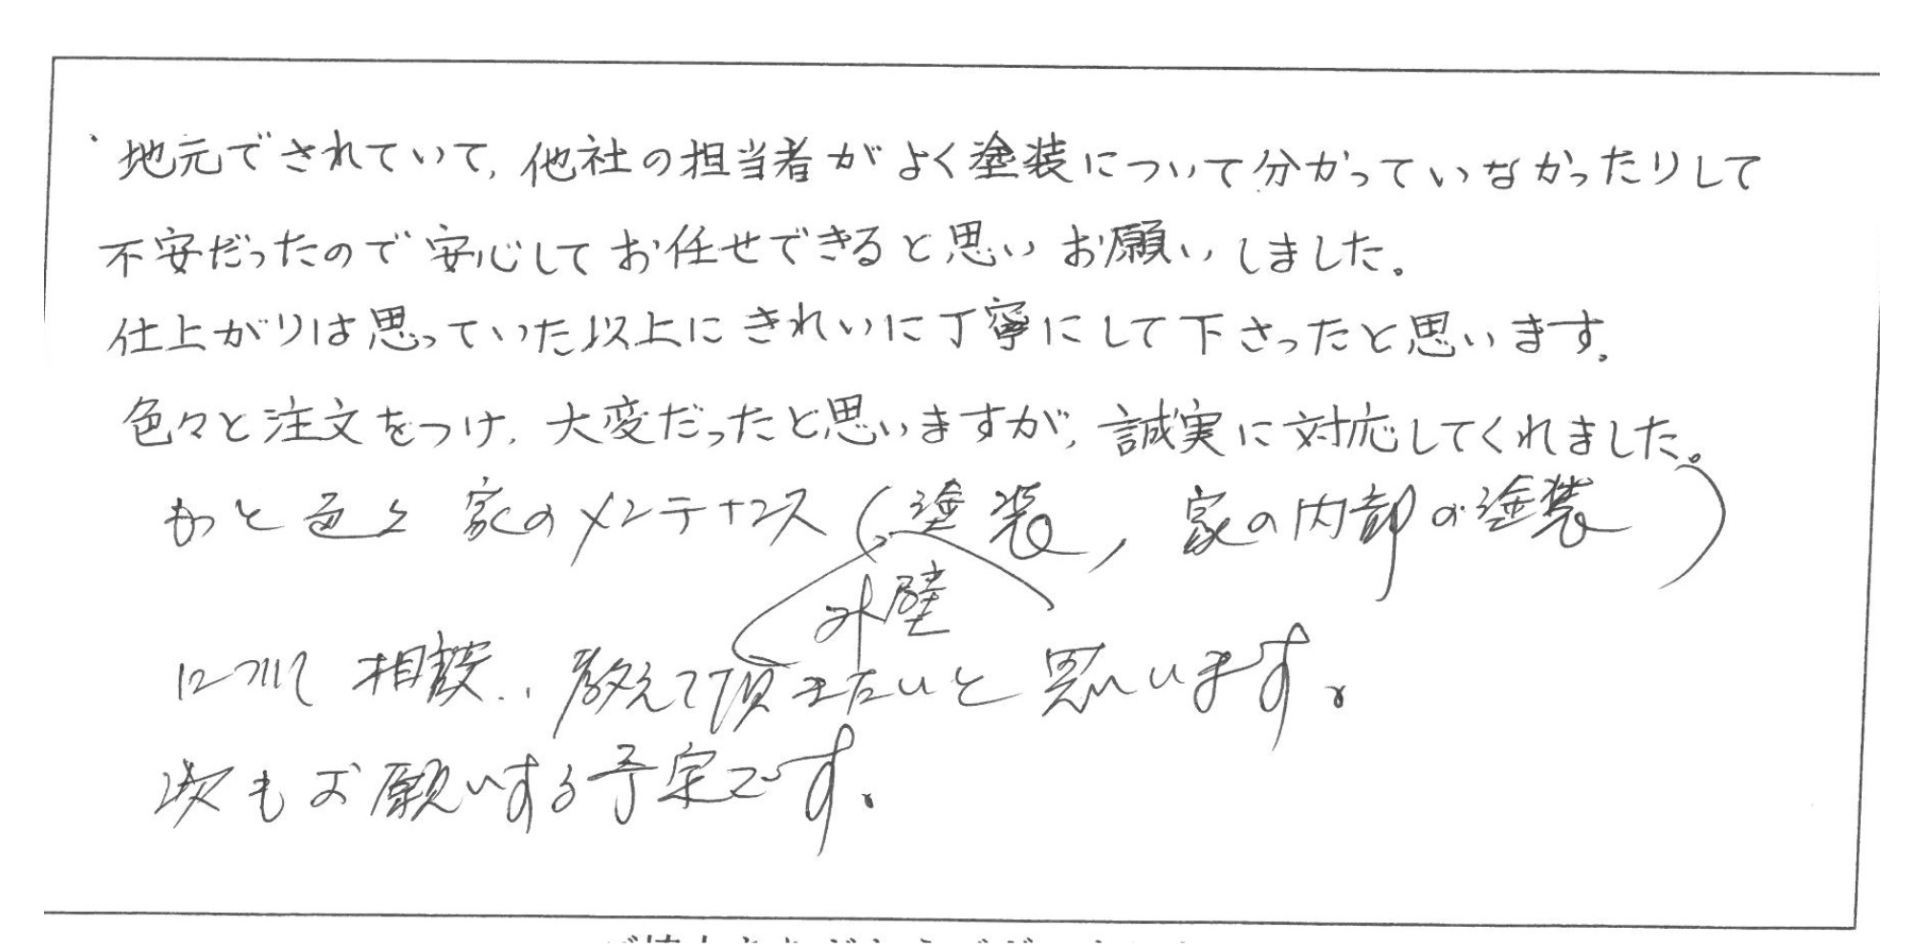 ・地元でされていて、他社の担当者がよく塗装について分かっていなかったりして
不安だったので安心してお任せできると思いお願いしました。
仕上がりは思っていた以上にきれいに丁寧にして下さったと思います。
色々と注文をつけ、大変だったと思いますが、誠実に対応してくれました。
もっと色々家のメンテナンス(塗装、家の内部の塗装)
外壁
について相談、教えて頂きたいと思います。
次もお願いする予定です。